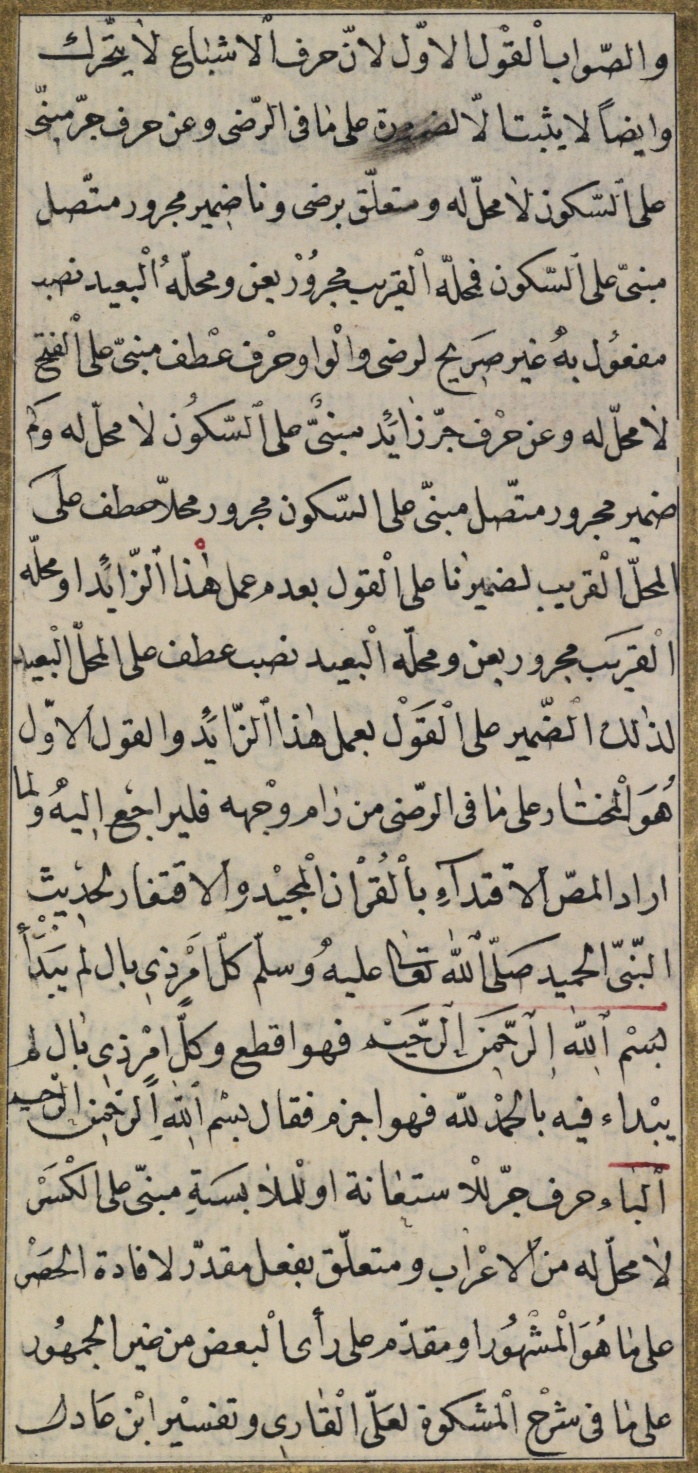 والصّواب ٱلقوْل الاوّل لانّ حرف ٱلاشباع لا يتحّرك
وايضاً لا يثبت الّا لضرورة على ما فى الرّضى وعن حرف جرّ مبنىّ
على ٱلسّكون لا محلّ له ومتعلّق برضى ونا ضمير مجرور متّصل
مبنىّ على ٱلسّكون فمحلّه ٱلقريب مجرُورْ بعن ومحلّهُ ٱلْبعيد نصب
مفعُول بهُ غير صَرِيح لرضى والْواو حرْف عْطف مبنىّ على ٱلْفتح
لا محلّ له وعن حرْف جرّ زٰائِد مبنىٌّ على ٱلسّكُون لا محلّ له وكم
ضمير مجرور متّصل مبنىّ على السّكون مجرور محلاّ عطف علَى
المحلّ ٱلْقريب لضمير نا على ٱلْقول بعدم عمل هٰذا ٱلزّائِد او محلّه
ٱلْقريَب مجرور بعن ومحلّه ٱلْبعيد نصب عطف على المحلّ ٱلْبعيد
لذٰلك ٱلضّمير على ٱلْقَوْل بعمل هٰذا ٱلزّايَد والقول ٱلاوّل
هُوَ ٱلْمختٰار على مٰا فى الرضى من رٰام وجْهه فليراجع اليهُ ولما
اراد المصّ ٱلاقتدآء بٱلْقُرْاٰن ٱلْمجيْد والاقتفار لحدِيْث
النّبىّ الحميد صَلّى ٱللّٰه تعٰالى عليهُ وسلّم كلّ امْرٍ ذى بال لم يبَدْأ
بسْم ٱللّٰهِ ٱلرّحَمٰنِ ٱلرّحَيم فهو اقطع وكلُّ امْرٍ ذى بٰال لم
يبْداء فيه بالحمْدُ للّه فهو اجزم فقال بسْم ٱللّٰهِ ٱلرّحمٰنِ ٱلرّحيم
ٱلْبٰاء حرف جرّ للْاستعٰانة او للْملابسَةِ مبنىّ على ٱلكْسَرْ
لا محلّ له من ٱلاعْرٰاب ومتعلّق بفعل مقدّر لافادة الحَصَرْ
على مٰا هُوَ ٱلْمشْهُور او مقدّم على رأى ٱلْبعض من غير الجمهُور
على مٰا فى شرْح ٱلْمشكوة لعلّى ٱلْقٰارى وتفسيْر ابْن عٰادل